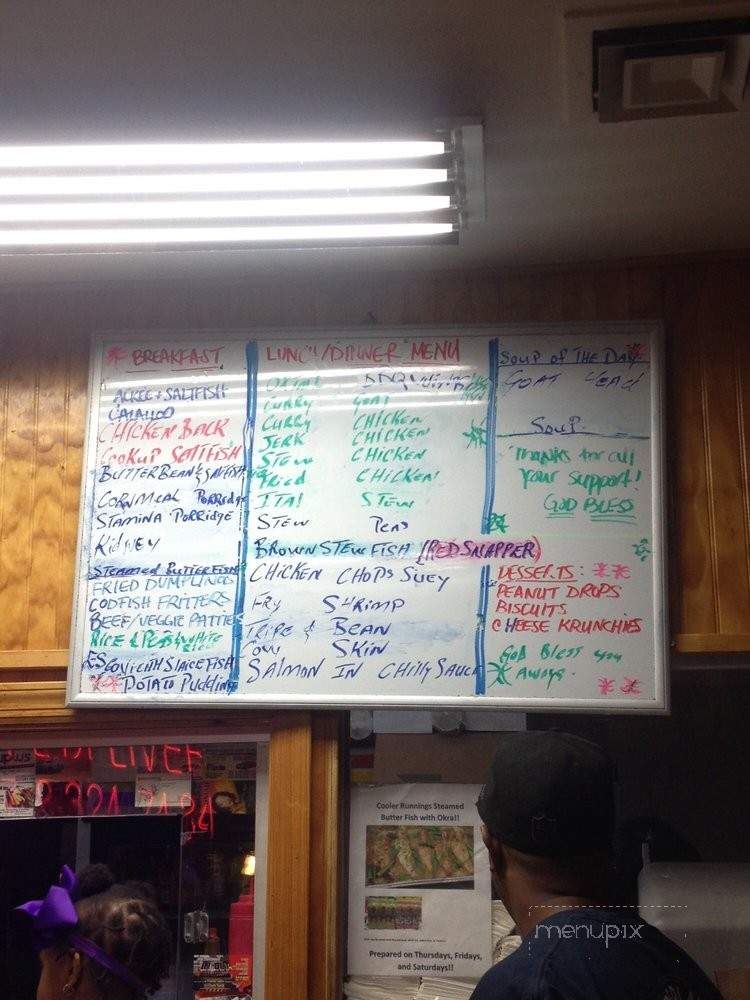 BREAKFAST
ACKEE + SALTFISH
CALALOO
CHICKEN BACK
COOKUP SALTFISH
BUTTERBEAN & SALTFISH
CORNMEAL PORRIDGE
STAMINA PORRIDGE
KIDNEY
STEAMED BUTTERFISH
FRIED DUMPLINGS
CODFISH FRITTERS
BEEF/VEGGIE PATTIES
RICE & PEAS/WHITE RICE
ESCOVICTH SLICE FISH
POTATO PUDDING
LUNCH/DINNER MENU
OXTAIL
CURRY GOAT
CURRY CHICKEN
JERK CHICKEN
STEW CHICKEN
FRIED CHICKEN
ITAL STEW
STEW PEAS
BROWN STEW FISH (RED SNAPPER)
CHICKEN CHOPS SUEY
FRY SHRIMP
TRIPE & BEAN
COW SKIN
SALMON IN CHILLY SAUCE
SOUP OF THE DAY
GOAT HEAD
SOUP
THANKS for all
your support!
GOD BLESS
DESSERTS:
PEANUT DROPS
BISCUITS
CHEESE KRUNCHIES
GOD BLESS you
AWAYS.
Cooler Runnings Steamed
Butter Fish with Okra!!
Prepared on Thursdays, Fridays,
and Saturdays!!
menupix